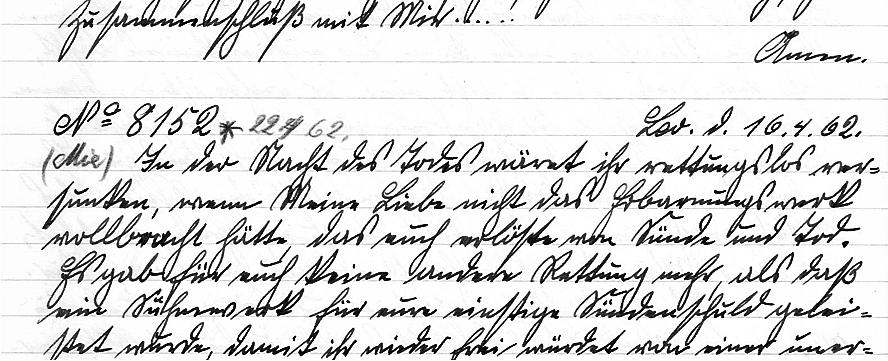 Zusammenschluß mit Mir....!
Amen.
No 8152 * 22.4 62. Leo. d. 16.4.62.
(Mie) In der Nacht des Todes wäret ihr rettungslos ver=
sunken, wenn Meine Liebe nicht das Erbarmungswerk
vollbracht hätte, das euch erlöste von Sünde und Tod.
Es gab für euch keine andere Rettung mehr, als daß
ein Sühnewerk für eure einstige Sündenschuld gelei=
stet wurde, damit ihr wieder frei würdet von einer uner=